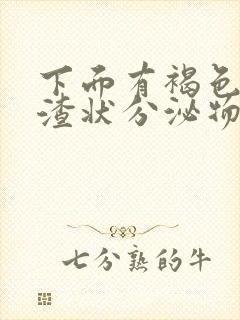 下面有褐色
渣状分泌物
七分熟的牛